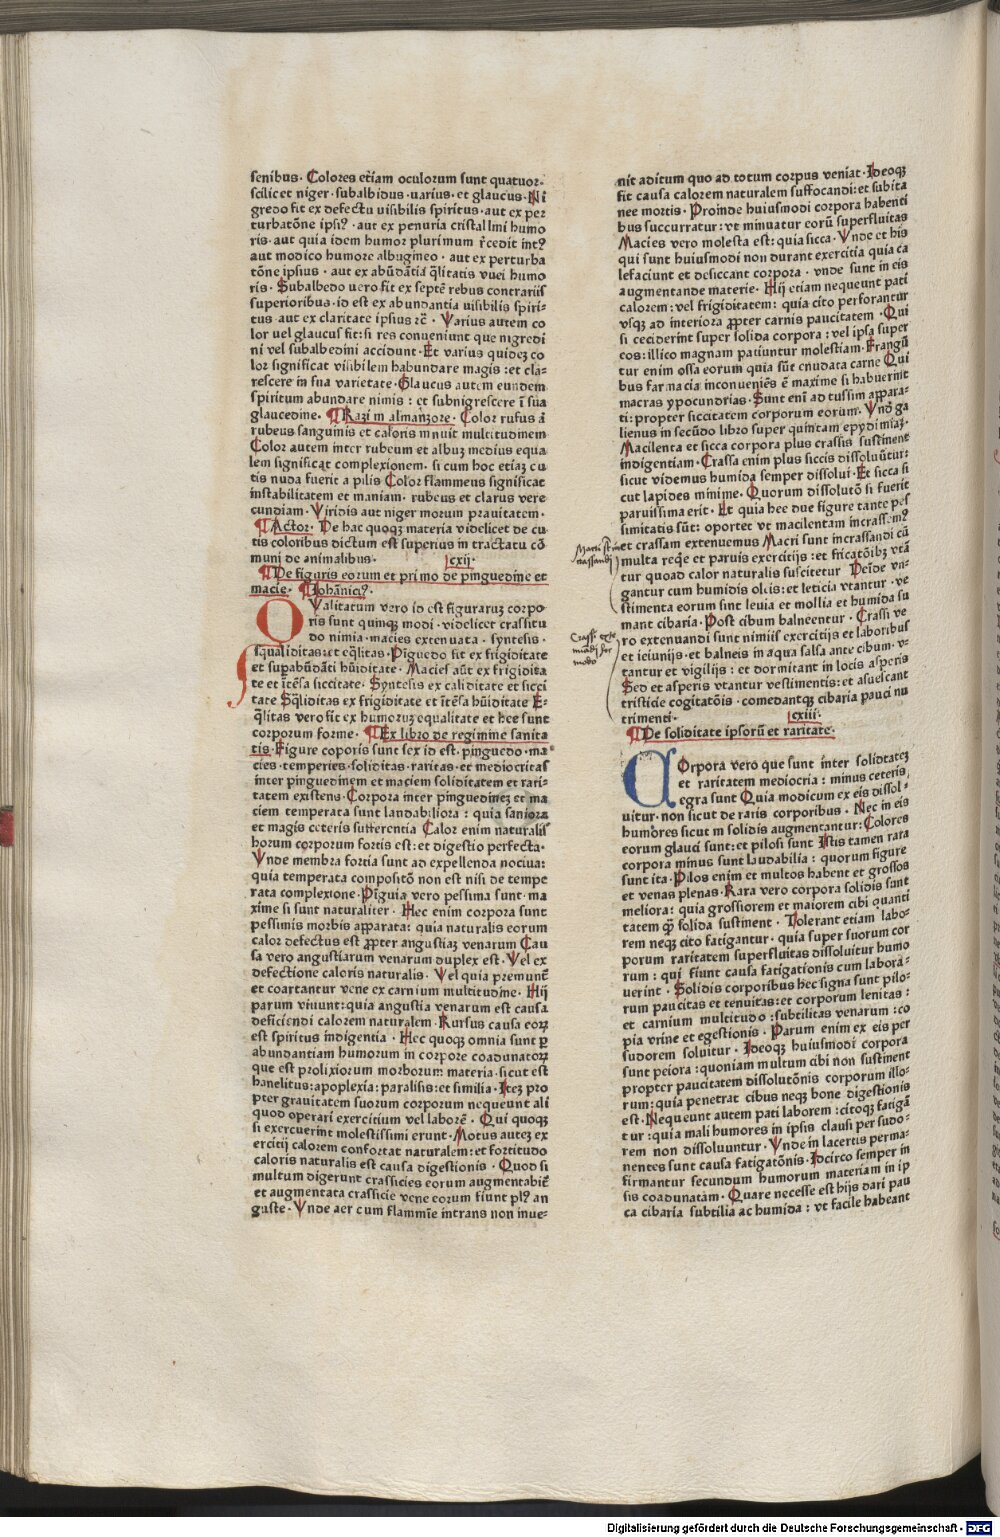 senibus. Colores etiam oculorum sunt quatuor-
scilicet niger. subalbidus. uarius. et glaucus. Ni
gredo fit ex defectu uisibilis spiritus. aut ex per
turbatōne ipsiꝰ. aut ex penuria cristallini humo
ris. aut quia idem humor plurimum r̄cedit intꝰ
aut modico humore albugineo. aut ex perturba
tōne ipsius. aut ex abūdātia q̄litatis vuei humo
ris. Subalbedo uero fit ex septē rebus contrariis
superioribus. id est ex abundantia uisibilis spiri-
tus. aut ex claritate ipsius ⁊c̄. Varius autem co
lor uel glaucus fit: si res conueniunt que nigredi
ni vel subalbedini accidunt. Et varius quideꝫ co
lor significat visibilem habundare magis: et cla-
rescere in sua varietate. Glaucus autem eundem
spiritum abundare nimis: et subnigrescere ī sua
glaucedine. ¶ Razi in almanzore. Color rufus ā
rubeus sanguinis et caloris innuit multitudinem
Color autem inter rubeum et albuꝫ medius equa
lem significat complexionem. si cum hoc etiaꝫ cu
tis nuda fuerit a pilis Color flammeus significat
instabilitatem et maniam. rubeus et clarus vere
cundiam. Viridis aut niger morum prauitatem.
¶ Actor. De hac quoqꝫ materia videlicet de cu
tis coloribus dictum est superius in tractatu cō
muni de animalibus. cxij.
¶ De figuris eorum et primo de pinguedine et
macie. ¶ Johāniciꝰ.
QValitatum vero id est figuraruꝫ corpo
ris sunt quinqꝫ modi. videlicet crassitu
do nimia. macies extenuata. syntesis.
squaliditas: et eq̄litas. Piguedo fit ex frigiditate
et supabūdāti hūiditate. Macies aūt ex frigidita
te et ītēsa siccitate. Syntesis ex caliditate et sicci
tate Sq̄liditas ex frigiditate et ītēsa hūiditate E-
q̄litas vero fit ex humoruꝫ equalitate et hee sunt
corporum forme. ¶ Ex libro de regimine sanita
tis. Figure coporis sunt sex id est. pinguedo. ma
cies. temperies. soliditas. raritas. et mediocritas
inter pinguedinem et maciem soliditatem et rari-
tatem existens. Corpora inter pinguedineꝫ et ma
ciem temperata sunt laudabiliora: quia saniora
et magis ceteris sufferentia Calor enim naturalis
horum corporum fortis est: et digestio perfecta.
Vnde membra fortia sunt ad expellenda nociua:
quia temperata compositō non est nisi de tempe
rata complexione. Pīguia vero pessima sunt. ma
xime si sunt naturaliter. Hec enim corpora sunt
pessimis morbis apparata: quia naturalis eorum
calor defectus est ꝓpter angustiaꝫ venarum Cau
sa vero angustiarum venarum duplex est. Vel ex
defectione caloris naturalis. Vel quia premunt̄
et coartantur vene ex carnium multitudine. Hij
parum viuunt: quia angustia venarum est causa
deficiendi calorem naturalem. Rursus causa eoꝝ
est spiritus indigentia. Hec quoqꝫ omnia sunt ꝑ
abundantiam humorum in corpore coadunatoꝝ
que est prolixiorum morborum materia. sicut est
hanelitus: apoplexia: paralisis: et similia. Iteꝫ pro
pter grauitatem suorum corporum nequeunt ali
quod operari exercitium vel laborē. Qui quoqꝫ
si exercuerint molestissimi erunt. Motus auteꝫ ex
ercitij calorem confortat naturalem: et fortitudo
caloris naturalis est causa digestionis. Quod si
multum digerunt crassicies eorum augmentabit̄
et augmentata crassicie vene eorum fiunt plꝰ an
guste. Vnde aer cum flammīe intrans non inue-
nit aditum quo ad totum corpus veniat. Ideoqꝫ
fit causa calorem naturalem suffocandi: et subita
nee mortis. Proinde huiusmodi corpora habenti
bus succurratur: vt minuatur eorū superfluitas
Macies vero molesta est: quia sicca. Vnde et his
qui sunt huiusmodi non durant exercitia quia ca
lefaciunt et desiccant corpora. vnde sunt in eis
augmentande materie. Hij etiam nequeunt pati
calorem: vel frigiditatem: quia cito perforantur
vsqꝫ ad interiora ꝓpter carnis paucitatem. Qui
si ceciderint super solida corpora: vel ipsa super
eos: illico magnam patiuntur molestiam. Frangū
tur enim ossa eorum quia sūt enudata carne Qui
bus farmacia inconueniēs ē maxime si habuerint
macras ypocundrias. Sunt eni ad tussim appara-
ti: propter siccitatem corporum eorum. Vnꝺ ga
lienus in secūdo libro super quintam epydimiaꝫ.
Macilenta et sicca corpora plus crassis sustinent
indigentiam. Crassa enim plus siccis dissoluūtur:
sicut videmus humida semper dissolui. Et sicca si
cut lapides minime. Quorum dissolutō si fuerit
paruissima erit. Et quia hee due figure tante pes
simitatis sūt: oportet vt macilentam incrassemꝰ
et crassam extenuemus Macri sunt incrassandi cū
multa reqe et paruis exercitijs: et fricatōibꝫ vtā
tur quoad calor naturalis suscitetur Deide vn-
gantur cum humidis oleis: et leticia vtantur. ve
stimenta eorum sint leuia et mollia et humida su
mant cibaria. Post cibum balneentur. Crassi ve
ro extenuandi sunt nimiis exercitijs et laboribus
et ieiunijs. et balneis in aqua salsa ante cibum. v-
tantur et vigilijs: et dormitant in locis asperis
Sed et asperis vtantur vestimentis: et asuescant
tristicie cogitatōis. comedantqꝫ cibaria pauci nu
trimenti. cxiii.
¶ De soliditate ipsorū et raritate.
COrpora vero que sunt inter solidtateꝫ
et raritatem mediocria: minus ceteris,
egra sunt Quia modicum ex eis dissol-
uitur. non sicut de raris corporibus. Nec in eis
humores sicut in solidis augmentantur: Colores
eorum glauci sunt: et pilosi sunt Istis tamen rara
corpora minus sunt laudabilia: quorum figure
sunt ita. Pilos enim et multos habent et grossos
et venas plenas. Rara vero corpora solidis sunt
meliora: quia grossiorem et maiorem cibi quanti
tatem ꝙ solida sustinent. Tolerant etiam labo-
rem neqꝫ cito fatigantur. quia super suorum cor
porum raritatem superfluitas dissoluitur humo
rum: qui fiunt causa fatigationis cum labora-
uerint. Solidis corporibus hec signa sunt pilo-
rum paucitas et tenuitas: et corporum lenitas:
et carnium multitudo: subtilitas venarum: co
pia vrine et egestionis. Parum enim ex eis per
sudorem soluitur. Ideoqꝫ huiusmodi corpora
sunt peiora: quoniam multum cibi non sustinent
propter paucitatem dissolutōnis corporum illo-
rum: quia penetrat cibus neqꝫ bone digestionis
est. Nequeunt autem pati laborem: citoqꝫ fatigā
tur: quia mali humores in ipsis clausi per sudo-
rem non dissoluuntur. Vnde in lacertis perma-
nentes sunt causa fatigatōnis. Idcirco semper in
firmantur secundum humorum materiam in ip
sis coadunatam. Quare necesse est hijs dari pau
ca cibaria subtilia ac humida: vt facile habeant
Digitalisierung gefördert durch die Deutsche Forschungsgemeinschaft - DFG